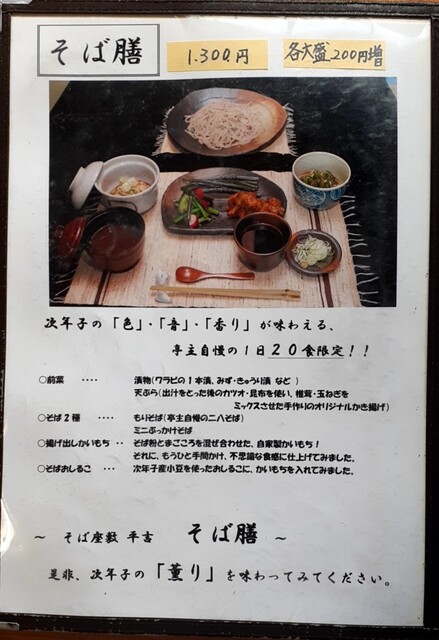 そば膳
1.300円
各大盛200円増
次年子の「色」・「音」・「香り」が味わえる、
亭主自慢の1日20食限定!!
○前菜 ‥‥ 漬物(ワラビの1本漬、みず・きゅうり漬 など)
天ぷら(出汁をとった後のカツオ・昆布を使い、椎茸・玉ねぎを
ミックスさせた手作りのオリジナルかき揚げ)
○そば2種 ‥‥ もりそば(亭主自慢の二八そば)
ミニぶっかけそば
○揚げ出しかいもち ‥ そば粉とまごころを混ぜ合わせた、自家製かいもち!
それに、もうひと手間かけ、不思議な食感に仕上げてみました。
○そばおしるこ ‥‥ 次年子産小豆を使ったおしるこに、かいもちを入れてみました。
~ そば座敷 平吉 そば膳 ~
是非、次年子の「薫り」を味わってみてください。